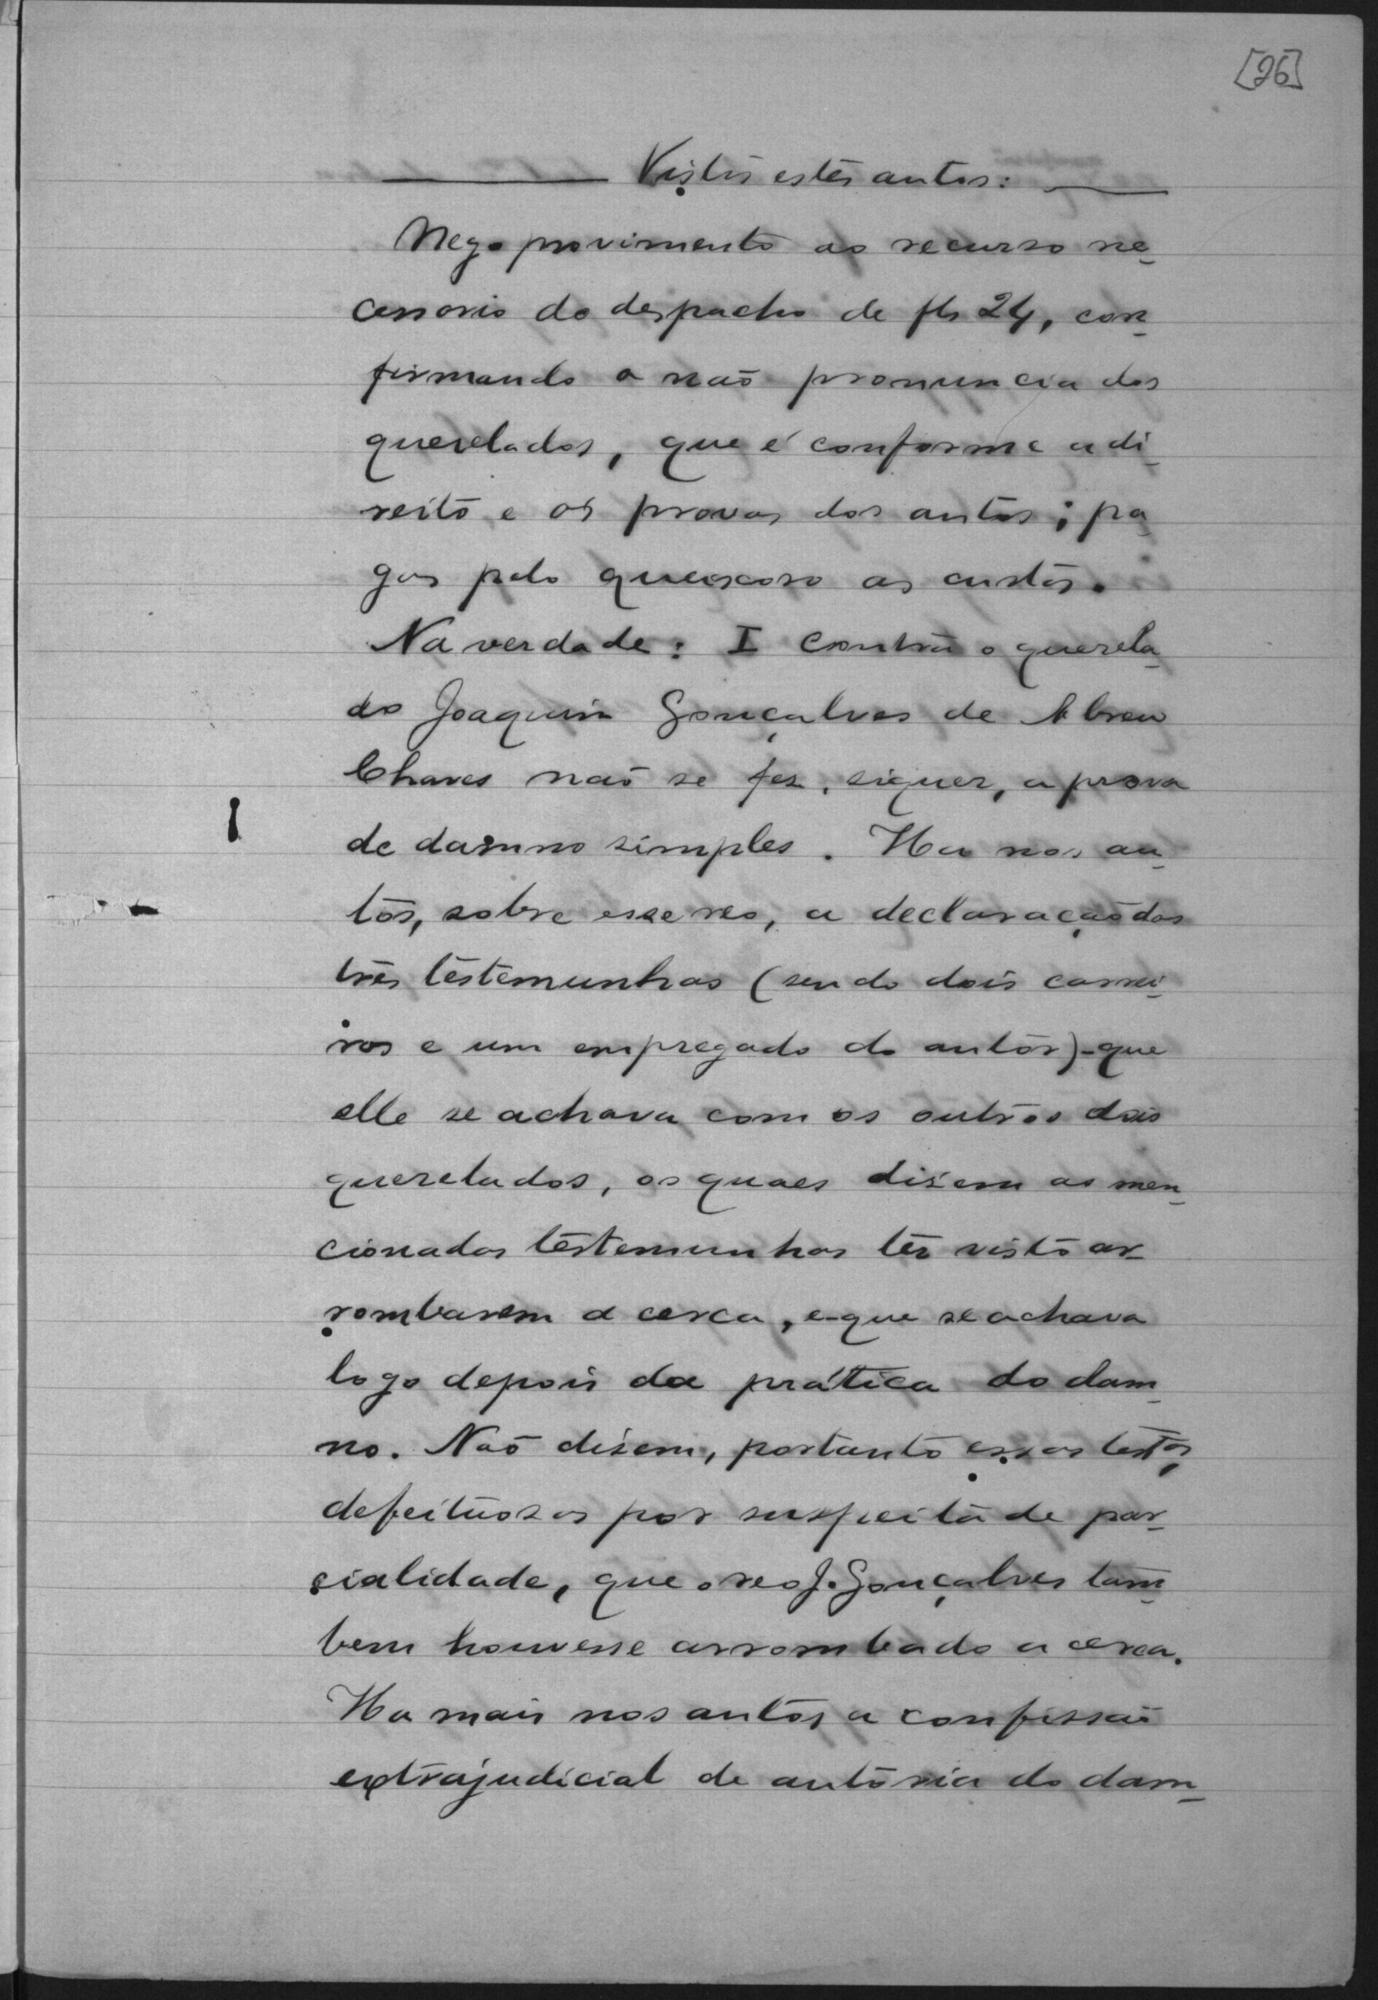 [26]
Vistos estes autos:
Nego provimento ao recurso ne-
cessorio do despacho de fls 24, con-
firmando a não pronuncia dos
querelados, que é conforme a di-
reito e as provas dos autos; pa-
gas pelo queixoso as custas.
Na verdade: I Contra o querela-
do Joaquim Gonçalves de Abreu
Chaves não se fez, siquer, a prova
de damno simples. Ha nos au-
tos, sobre esse reo, a declaração das
três testemunhas (sendo dois carrei-
ros e um empregado do autor)-que
elle se achava com os outros dois
querelados, os quaes dizem as men-
cionadas testemunhas ter visto ar-
rombarem a cerca, e-que se achava
logo depois da prática do dam-
no. Não dizem, portanto essas testas,
defeituosas por suspeita de par-
cialidade, que o reo J. Gonçalves tam-
bem houvesse arrombado a cerca.
Ha mais nos autos a confissão
extrajudicial de autoria do dam-